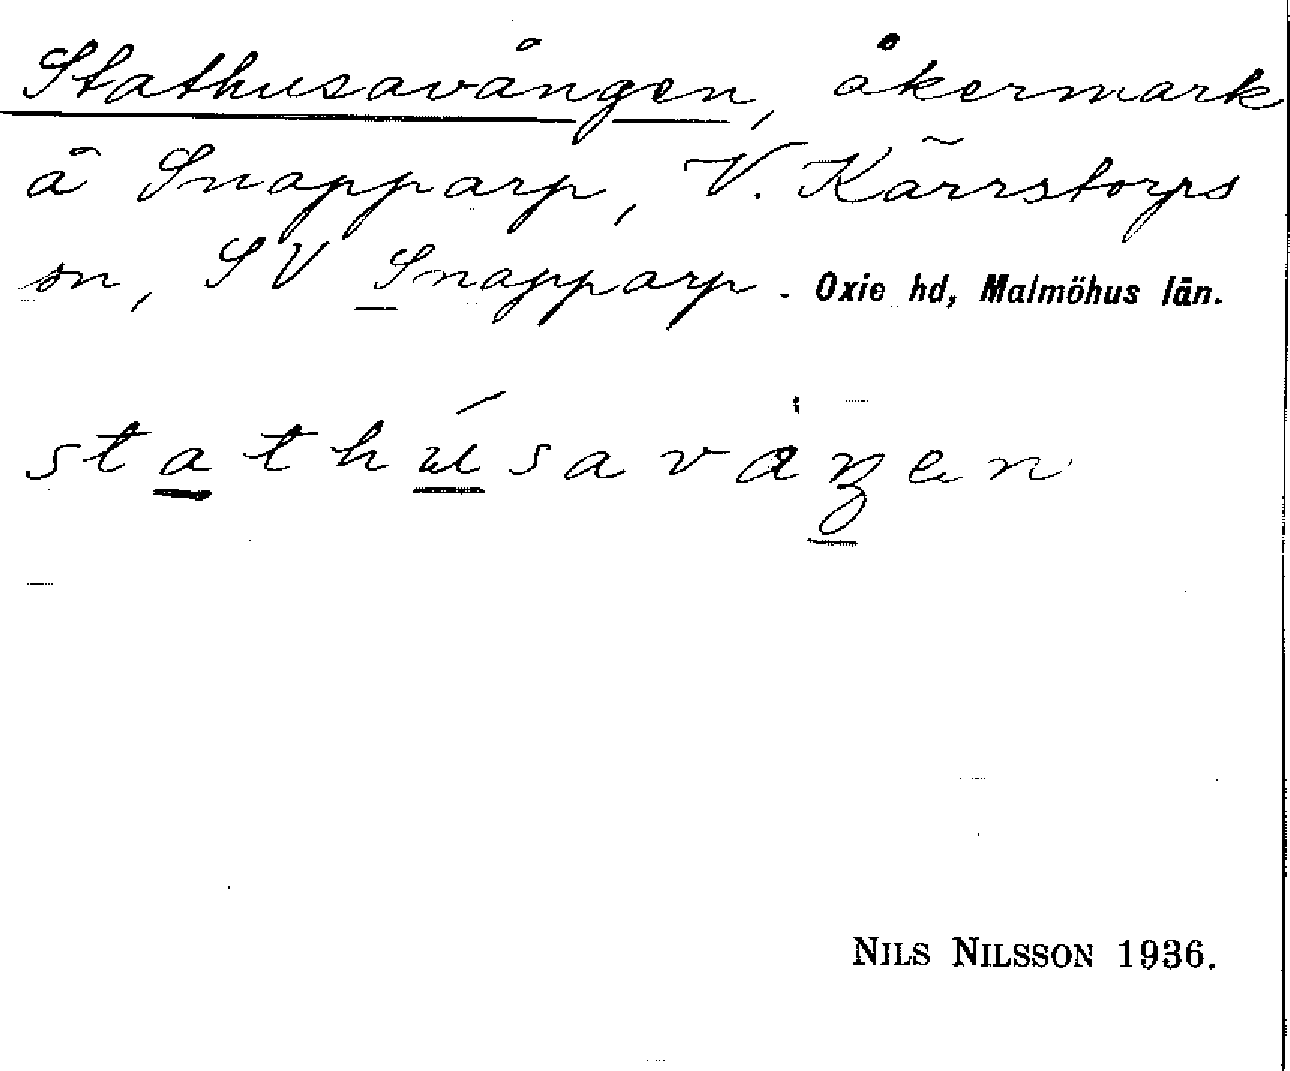 Stathusavången, åkermark
å Snapparp, V. Kärrstorps
sn, SV Snapparp. Oxie hd, Malmöhus län.
stathúsavaŋen
NILS NILSSON 1936.